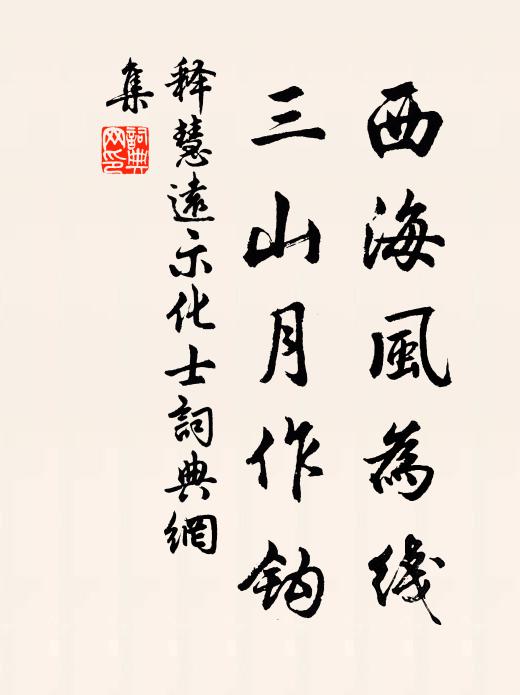 西海風為綫
三山月作鈎
释慧遠示化士詞典網
集
詞典網印